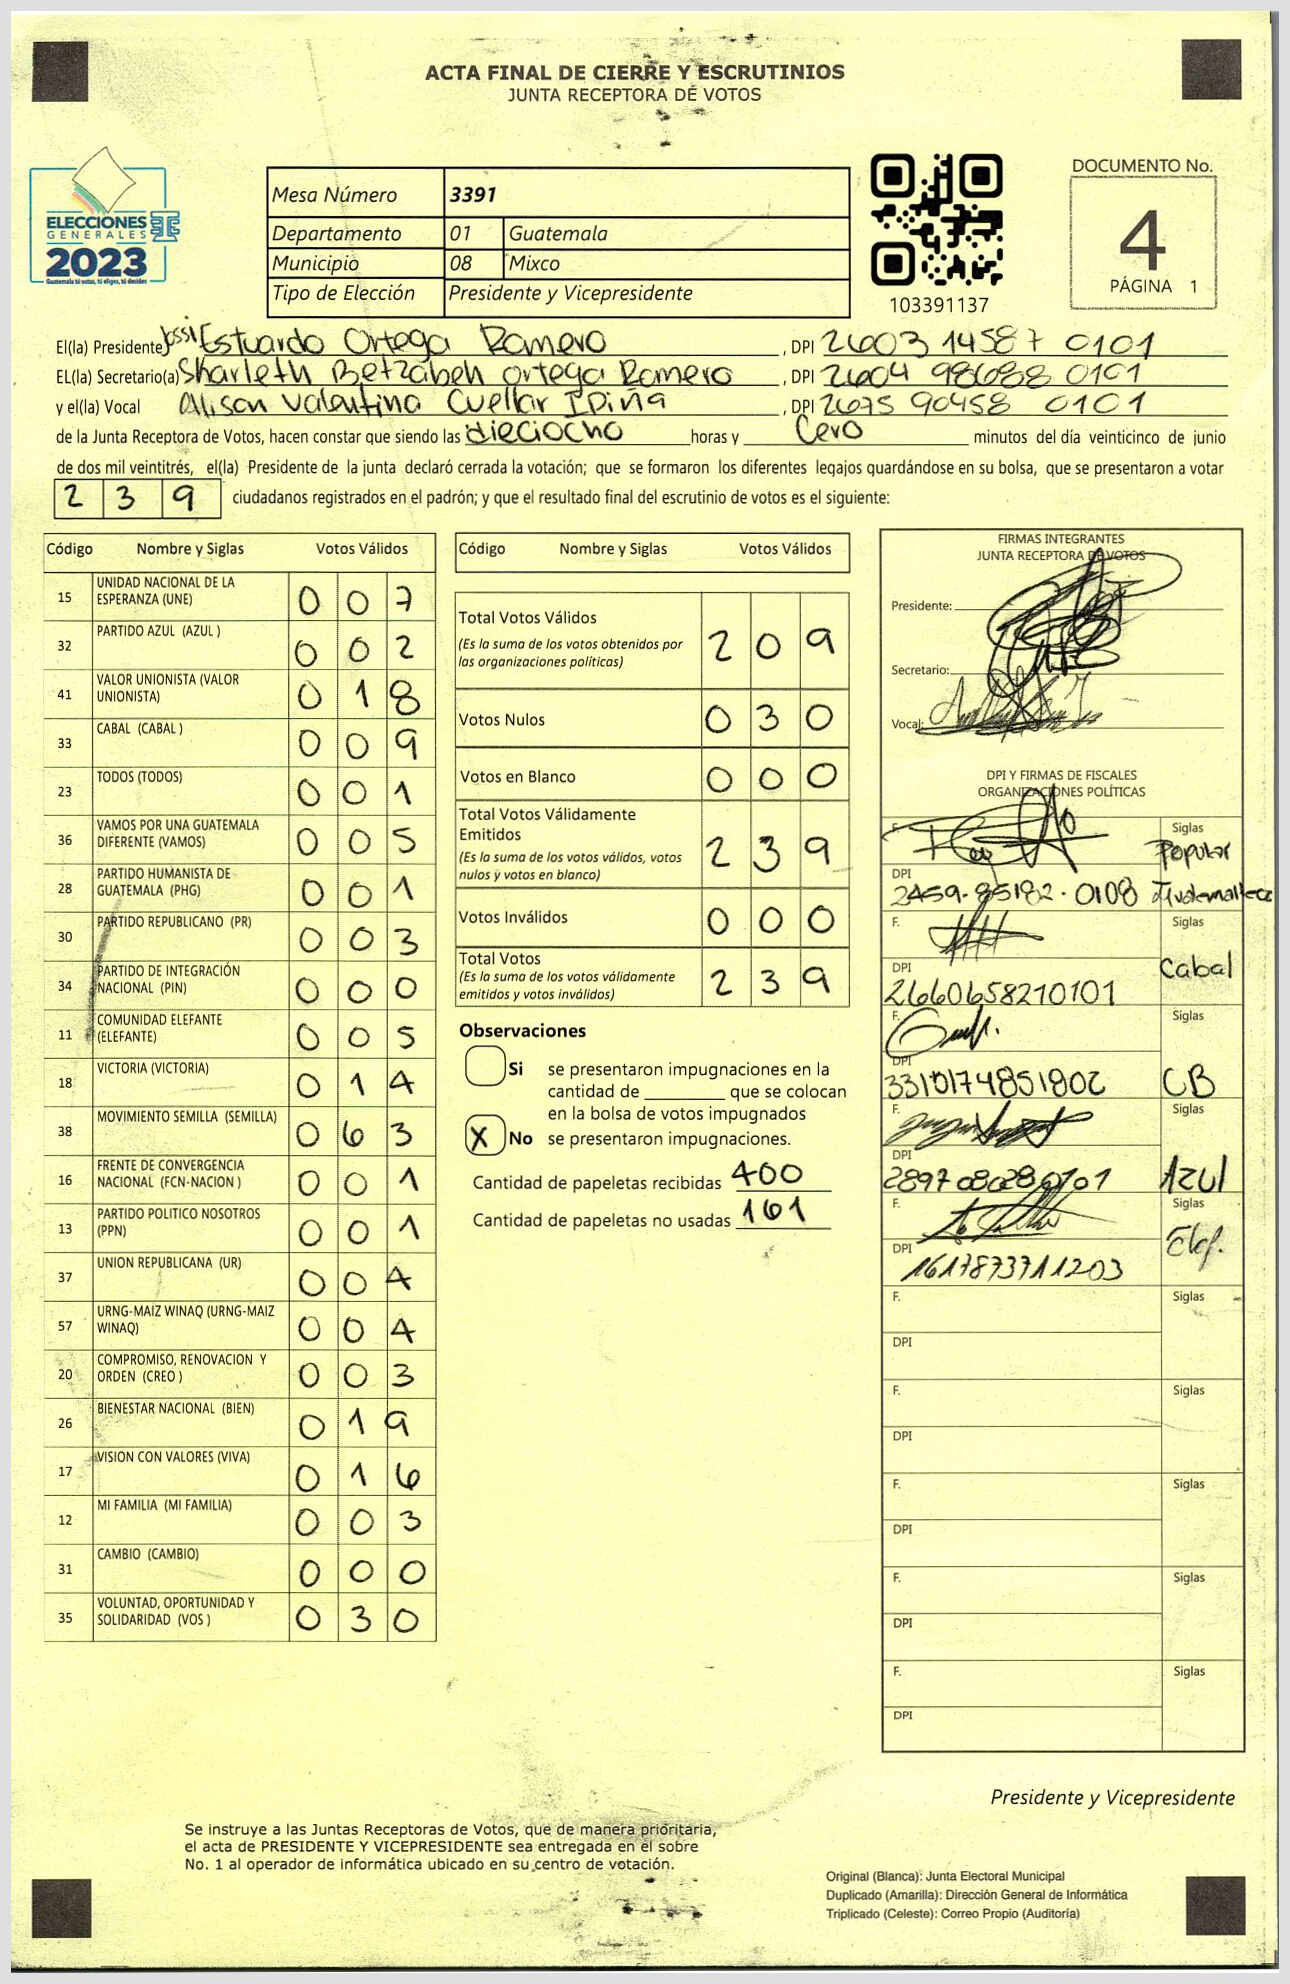 ACTA FINAL DE CIERRE Y ESCRUTINIOS
JUNTA RECEPTORA DE VOTOS
ELECCIONES
GENERALES
2023
Guatemala tú votas, tú eliges, tú decides
Mesa Número 3391
Departamento 01 Guatemala
Municipio 08 Mixco
Tipo de Elección Presidente y Vicepresidente
103391137
DOCUMENTO No.
4
PÁGINA 1
El(la) Presidente Estuardo Ortega Romero, DPI 2603 14587 0101
EL(la) Secretario(a) Sharleth Betzabeh Ortega Romero, DPI 2604 98688 0101
y el(la) Vocal Alison Valentina Cuellar Ipiña, DPI 2675 90458 0101
de la Junta Receptora de Votos, hacen constar que siendo las dieciocho horas y Cero minutos del día veinticinco de junio
de dos mil veintitrés, el(la) Presidente de la junta declaró cerrada la votación; que se formaron los diferentes legajos guardándose en su bolsa, que se presentaron a votar
239 ciudadanos registrados en el padrón; y que el resultado final del escrutinio de votos es el siguiente:
Código Nombre y Siglas Votos Válidos
15 UNIDAD NACIONAL DE LA ESPERANZA (UNE) 0 0 7
32 PARTIDO AZUL (AZUL ) 0 0 2
41 VALOR UNIONISTA (VALOR UNIONISTA) 0 1 8
33 CABAL (CABAL ) 0 0 9
23 TODOS (TODOS) 0 0 1
36 VAMOS POR UNA GUATEMALA DIFERENTE (VAMOS) 0 0 5
28 PARTIDO HUMANISTA DE GUATEMALA (PHG) 0 0 1
30 PARTIDO REPUBLICANO (PR) 0 0 3
34 PARTIDO DE INTEGRACIÓN NACIONAL (PIN) 0 0 0
11 COMUNIDAD ELEFANTE (ELEFANTE) 0 0 5
18 VICTORIA (VICTORIA) 0 1 4
38 MOVIMIENTO SEMILLA (SEMILLA) 0 6 3
16 FRENTE DE CONVERGENCIA NACIONAL (FCN-NACION ) 0 0 1
13 PARTIDO POLITICO NOSOTROS (PPN) 0 0 1
37 UNION REPUBLICANA (UR) 0 0 4
57 URNG-MAIZ WINAQ (URNG-MAIZ WINAQ) 0 0 4
20 COMPROMISO, RENOVACION Y ORDEN (CREO ) 0 0 3
26 BIENESTAR NACIONAL (BIEN) 0 1 9
17 VISION CON VALORES (VIVA) 0 1 6
12 MI FAMILIA (MI FAMILIA) 0 0 3
31 CAMBIO (CAMBIO) 0 0 0
35 VOLUNTAD, OPORTUNIDAD Y SOLIDARIDAD (VOS ) 0 3 0
Código Nombre y Siglas Votos Válidos
Total Votos Válidos 2 0 9
(Es la suma de los votos obtenidos por
las organizaciones políticas)
Votos Nulos 0 3 0
Votos en Blanco 0 0 0
Total Votos Válidamente
Emitidos 2 3 9
(Es la suma de los votos válidos, votos
nulos y votos en blanco)
Votos Inválidos 0 0 0
Total Votos 2 3 9
(Es la suma de los votos válidamente
emitidos y votos inválidos)
Observaciones
Si se presentaron impugnaciones en la
cantidad de ________ que se colocan
en la bolsa de votos impugnados
X No se presentaron impugnaciones.
Cantidad de papeletas recibidas 400
Cantidad de papeletas no usadas 161
FIRMAS INTEGRANTES
JUNTA RECEPTORA DE VOTOS
Presidente:
Secretario:
Vocal:
DPI Y FIRMAS DE FISCALES
ORGANIZACIONES POLÍTICAS
F. Siglas Popular
DPI 2459-85182-0108
F. Siglas Cabal
DPI 2660658210101
F. Siglas CB
DPI 3310174851802
F. Siglas AZUL
DPI
F. Siglas Elef.
DPI 1617873711203
F. Siglas
DPI
F. Siglas
DPI
F. Siglas
DPI
F. Siglas
DPI
F. Siglas
DPI
Presidente y Vicepresidente
Se instruye a las Juntas Receptoras de Votos, que de manera prioritaria,
el acta de PRESIDENTE Y VICEPRESIDENTE sea entregada en el sobre
No. 1 al operador de informática ubicado en su centro de votación.
Original (Blanca): Junta Electoral Municipal
Duplicado (Amarilla): Dirección General de Informática
Triplicado (Celeste): Correo Propio (Auditoría)